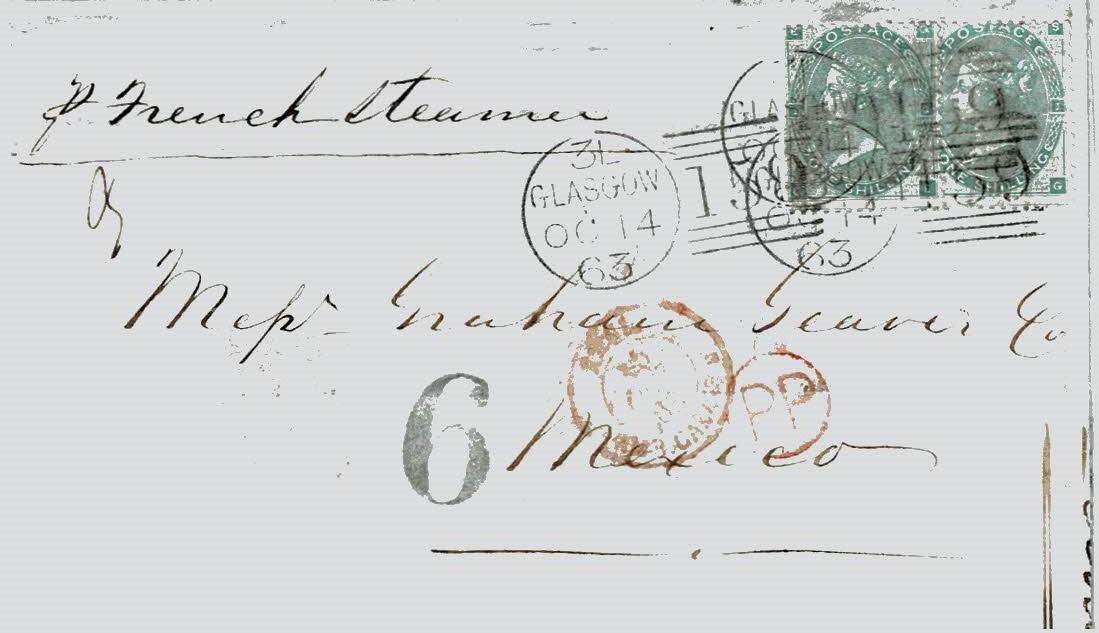 POSTAGE POSTAGE
ONE SHILLING ONE SHILLING
p French Steamer
3L
GLASGOW
OC 14
63
159
GLASGOW
OC 14
63
159
Messrs Graham Geaves & Co
PP
6
Mexico